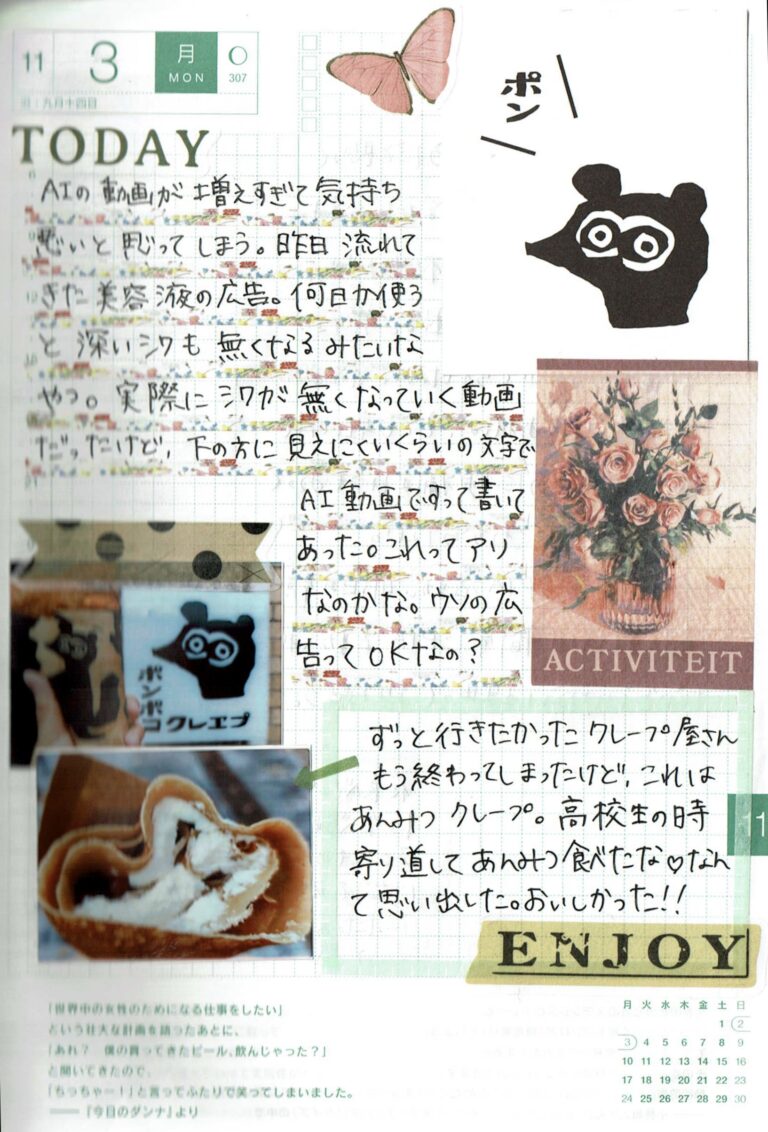 11 3 月 MON 307
旧:九月十四日
TODAY
ポン
AIの動画が増えすぎて気持ち
悪いと思ってしまう。昨日流れて
きた美容液の広告。何日か使う
と深いシワも無くなるみたいな
やつ。実際にシワが無くなっていく動画
だったけど、下の方に見えにくいくらいの文字で
AI動画ですって書いて
あった。これってアリ
なのかな。ウソの広
告ってOKなの?
ACTIVITEIT
ポンポコ
クレエプ
ずっと行きたかったクレープ屋さん
もう終わってしまったけど、これは
あんみつクレープ。高校生の時
寄り道してあんみつ食べたな♡なん
て思い出した。おいしかった!!
11
ENJOY
「世界中の女性のためになる仕事をしたい」
という壮大な計画を語ったあとに、
「あれ? 僕の買ってきたビール、飲んじゃった?」
と聞いてきたので、
「ちっちゃー!」と言ってふたりで笑ってしまいました。
──『今日のダンナ』より
月 火 水 木 金 土 日
1 2
3 4 5 6 7 8 9
10 11 12 13 14 15 16
17 18 19 20 21 22 23
24 25 26 27 28 29 30